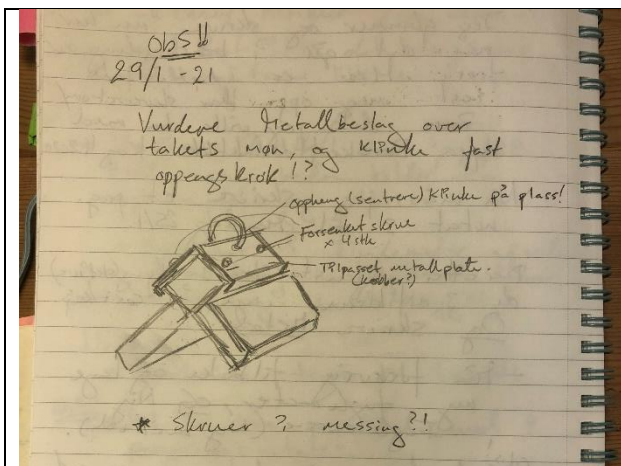 ObS!!
29/1 -21
Vurdere Metallbeslag over
takets møn, og klinke fast
oppengskrok!?
oppheng (sentrere) Klinke på plass!
Forsenket skrue
x 4 stk
Tilpasset metallplate.
(kobber?)
* Skruer? messing?!